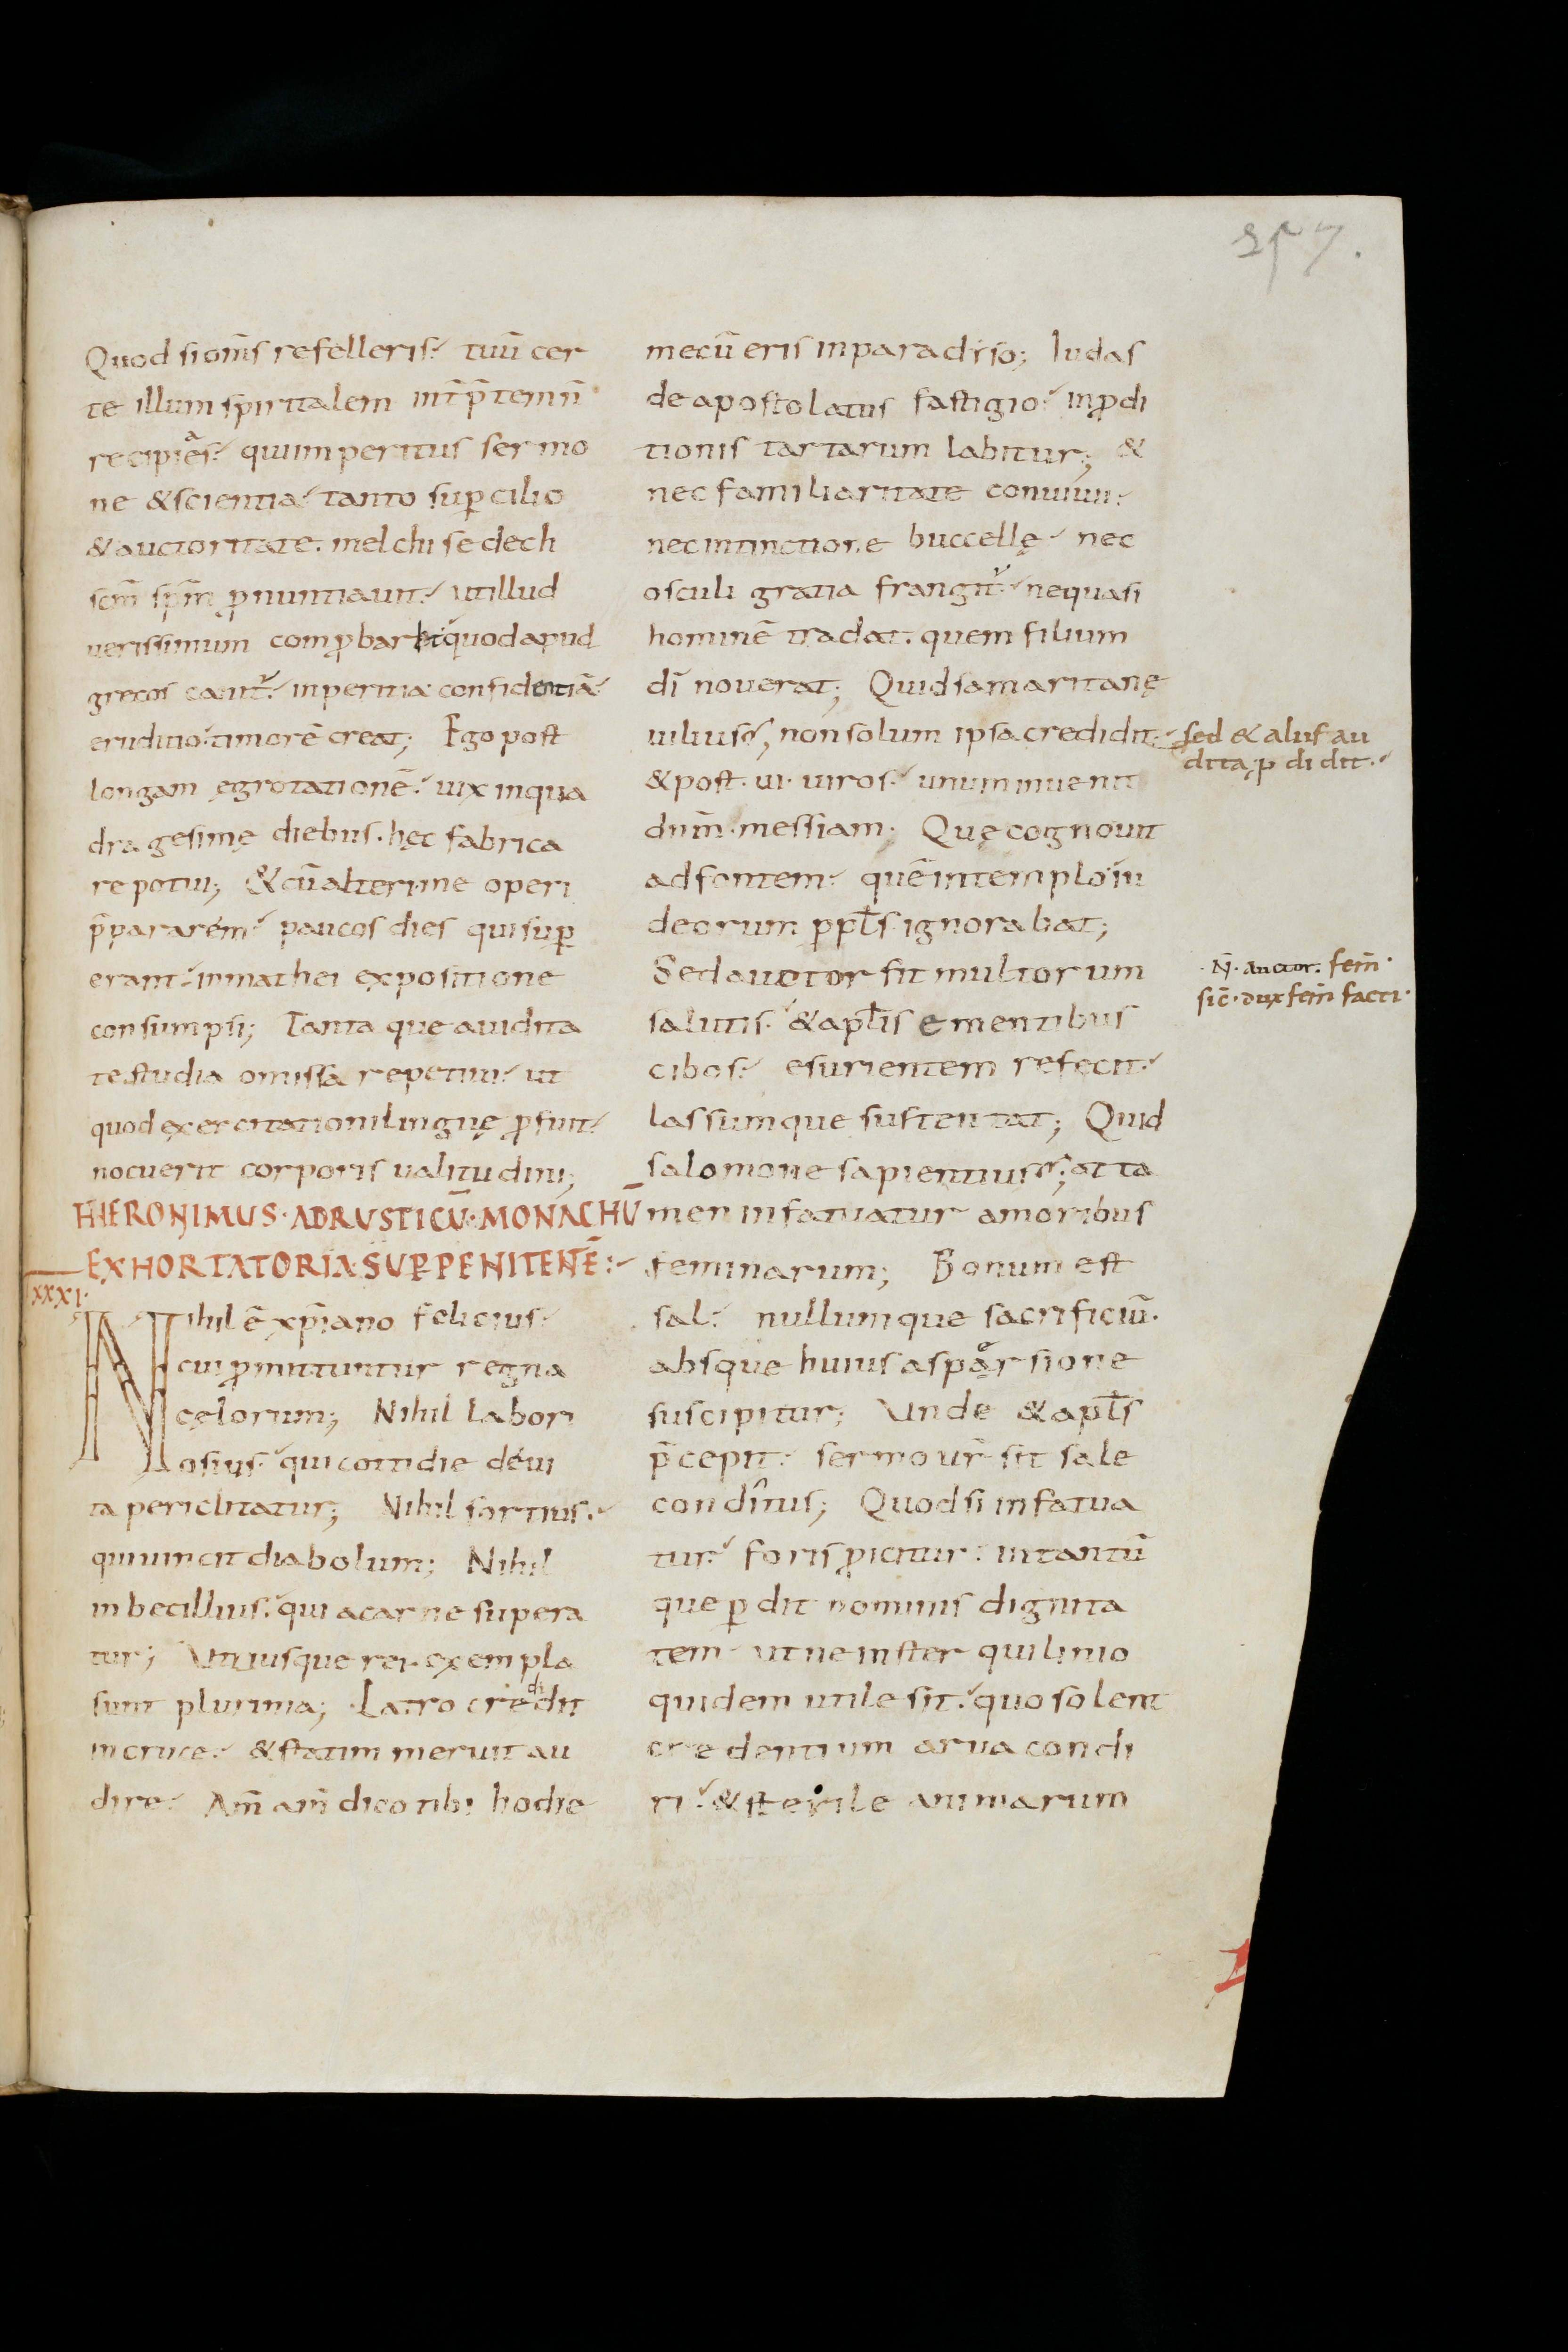 257.
Quod si om̄s refelleris. tuū cer
te illum spiritalem int̄p̄tem n̄
recipiēs. qui imperitus sermo
ne & scientia tanto sup̱cilio
& auctoritate. melchisedech
sc̄m sp̄m ꝓnuntiauit. ut illud
uerissimum comꝓbaret quod apud
grecos canit᷑. inperitia confidentiā
eruditio timorē creat; Ego post
longam ęgrotationē. uix in qua
dragesimę diebus. hęc fabrica
re potui; & cū alteri me operi
p̄pararem. paucos dies qui suꝑ
erant. in mathei expositione
consumpsi; Tanta que auidita
te studia omissa repetiui. ut
quod exercitationi linguę ꝓfuit.
nocuerit corporis ualitudini;
HIERONIMUS · AD RUSTICŪ · MONACHŪ
EXHORTATORIA SUꝑ PENITENĒ:
XXXI.
Nihil ē xp̄iano felicius.
cui ꝓmittuntur regna
cęlorum; Nihil labori
osius. qui cottidie de ui
ta periclitatur; Nihil fortius.
qui uincit diabolum; Nihil
inbecillius. qui a carne supera
tur; Utriusque rei exempla
sunt plurima; Latro credidit
in cruce. & statim meruit au
dire. Am̄ am̄ dico tibi hodie
mecū eris in paradiso; Iudas
de apostolatus fastigio. in ꝓdi
tionis tartarum labitur; &
nec familiaritate conuiuii.
nec intinctione buccellę nec
osculi gratia frangit᷑. ne quasi
hominē tradat. quem filium
dī nouerat; Quid samaritanę
uilius; non solum ipsa credidit.
& post. ui. uiros. unum inuenit
dnm̄. messiam; Quę cognouit
ad fontem. quē in templo iu
deorum pp̄ls ignorabat;
Sed auctor fit multorum
salutis. & apl̄is ementibus
cibos. esurientem refecit.
lassumque sustentat; Quid
salomone sapientius; at ta
men infatuatur amoribus
feminarum; Bonum est
sal. nullumque sacrificiū.
absque huius aspersione
suscipitur; Unde & apl̄s
p̄cepit. sermo ur̄ sit sale
conditus; Quod si infatua
tur. foris ꝓicitur. in tantū
que ꝑdit nominis dignita
tem ut ne in sterquilinio
quidem utile sit. quo solent
credentium arua condi
ri. & sterile animarum
sed & aliis au
dita, ꝓdidit.
· N̄. auctor. fem̄·
sic̄. dux fem̄ facti·